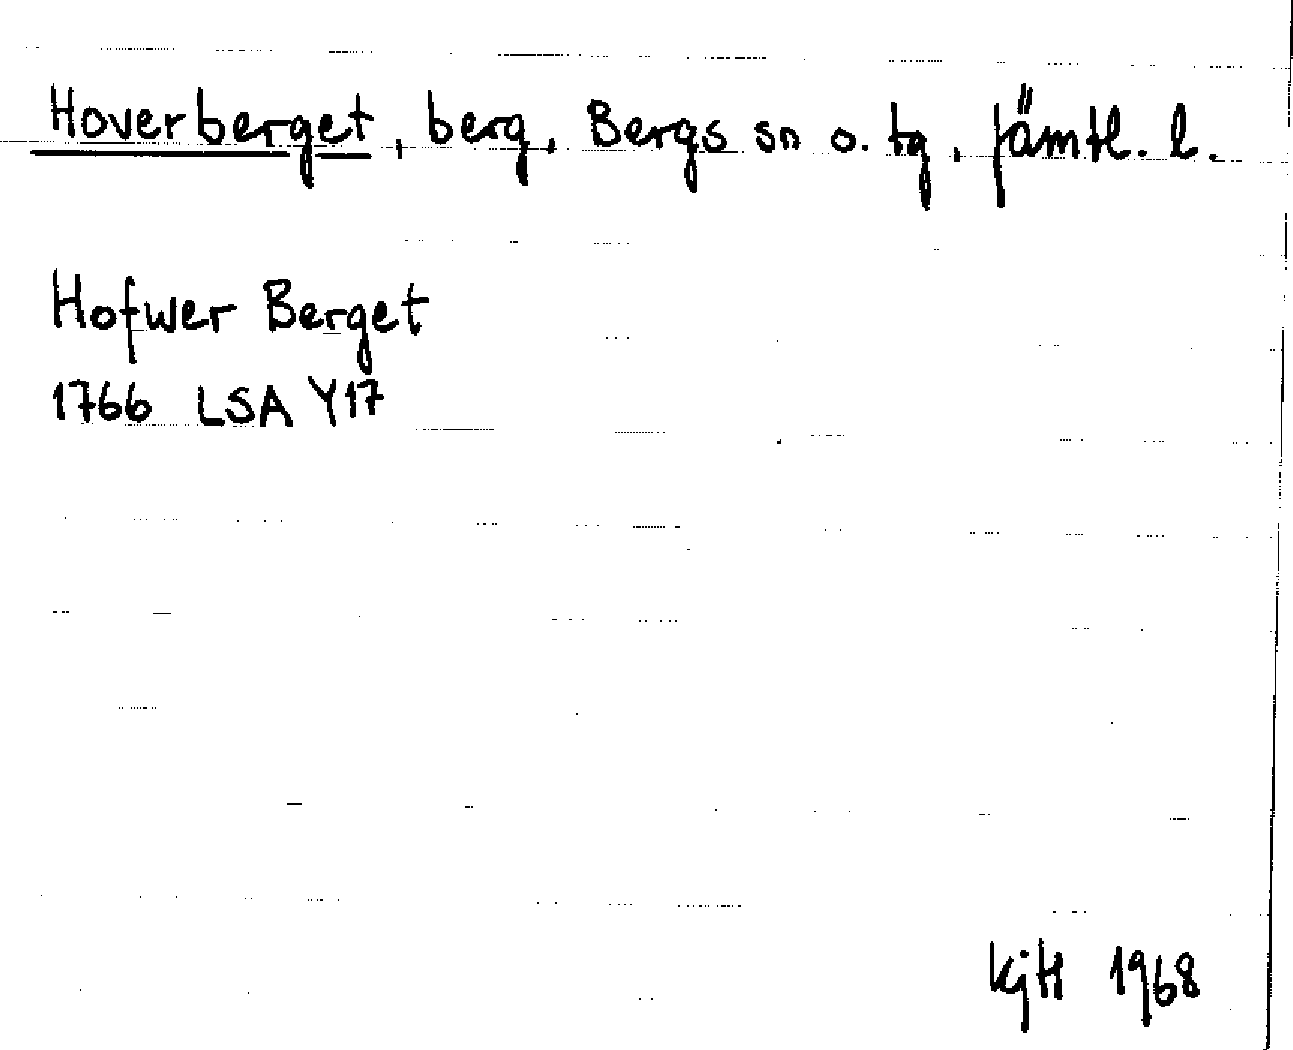 Hoverberget, berg, Bergs sn o. tg, Jämtl. l.
Hofwer Berget
1766 LSA Y17
KjH 1968